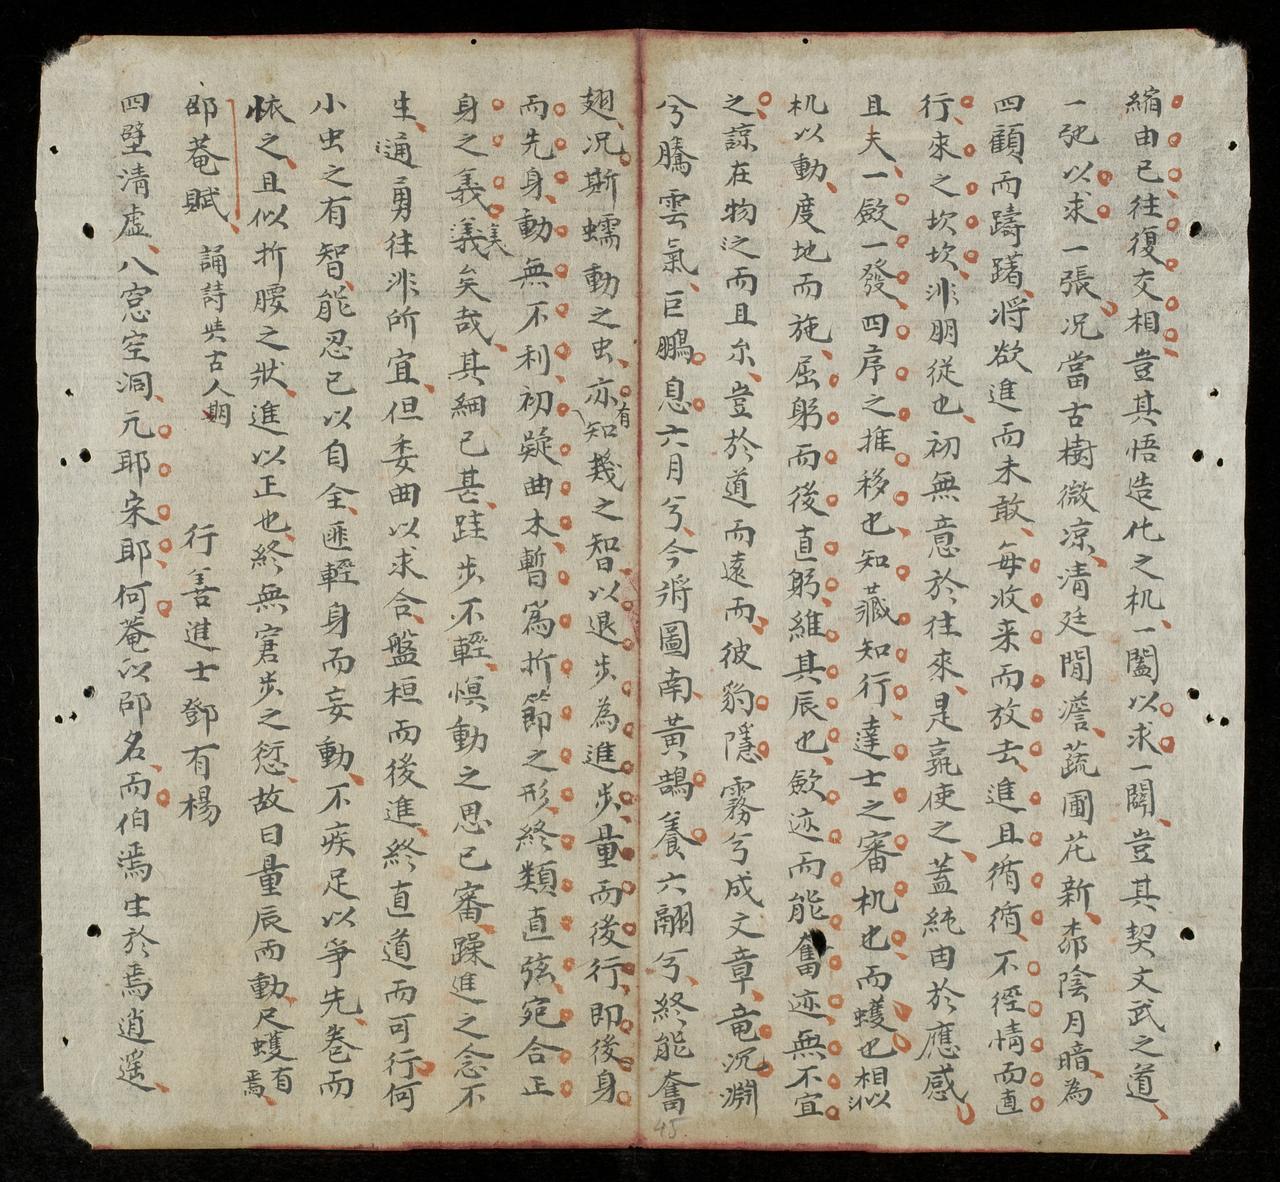 縮由已往復交相豈其悟造化之机一闔以求一闢豈其契文武之道
一弛以求一張况當古樹微凉清廷閒澹蔬圃花新柰陰月暗為
四顧而躊躇將欲進而未敢每收来而放去進且循循不徑情而直
行來之坎坎非朋從也初無意於往來是孰使之蓋純由於應感
且夫一斂一發四序之推移也知藏知行達士之審机也而蠖也相似
机以動度地而施屈躬而後直躬維其辰也斂迹而能奮迹無不宜
之諒在物之而且尒豈於道而遠而彼豹隱霧兮成文章竜沉淵
兮騰雲氣巨鵬息六月兮今將圖南黃鵠養六翮兮終能奮
翅况斯蠕動之虫亦有知幾之智以退步為進步量而後行即後身
而先身動無不利初疑曲木暫為折節之形終類直弦宛合正
身之義義美矣哉其細已甚跬步不輕慎動之思已審躁進之念不
生通勇往非所宜但委曲以求合盤桓而後進終直道而可行何
小虫之有智能忍已以自全匪輕身而妄動不疾足以爭先卷而
怀之且似折腰之狀進以正也終無窘步之愆故曰量辰而動尺蠖有焉
邵菴賦 誦詩共古人期 行善進士鄧有楊
四壁清虛八窓空洞元耶宋耶何菴以邵名而伯焉生於焉逍遥
45